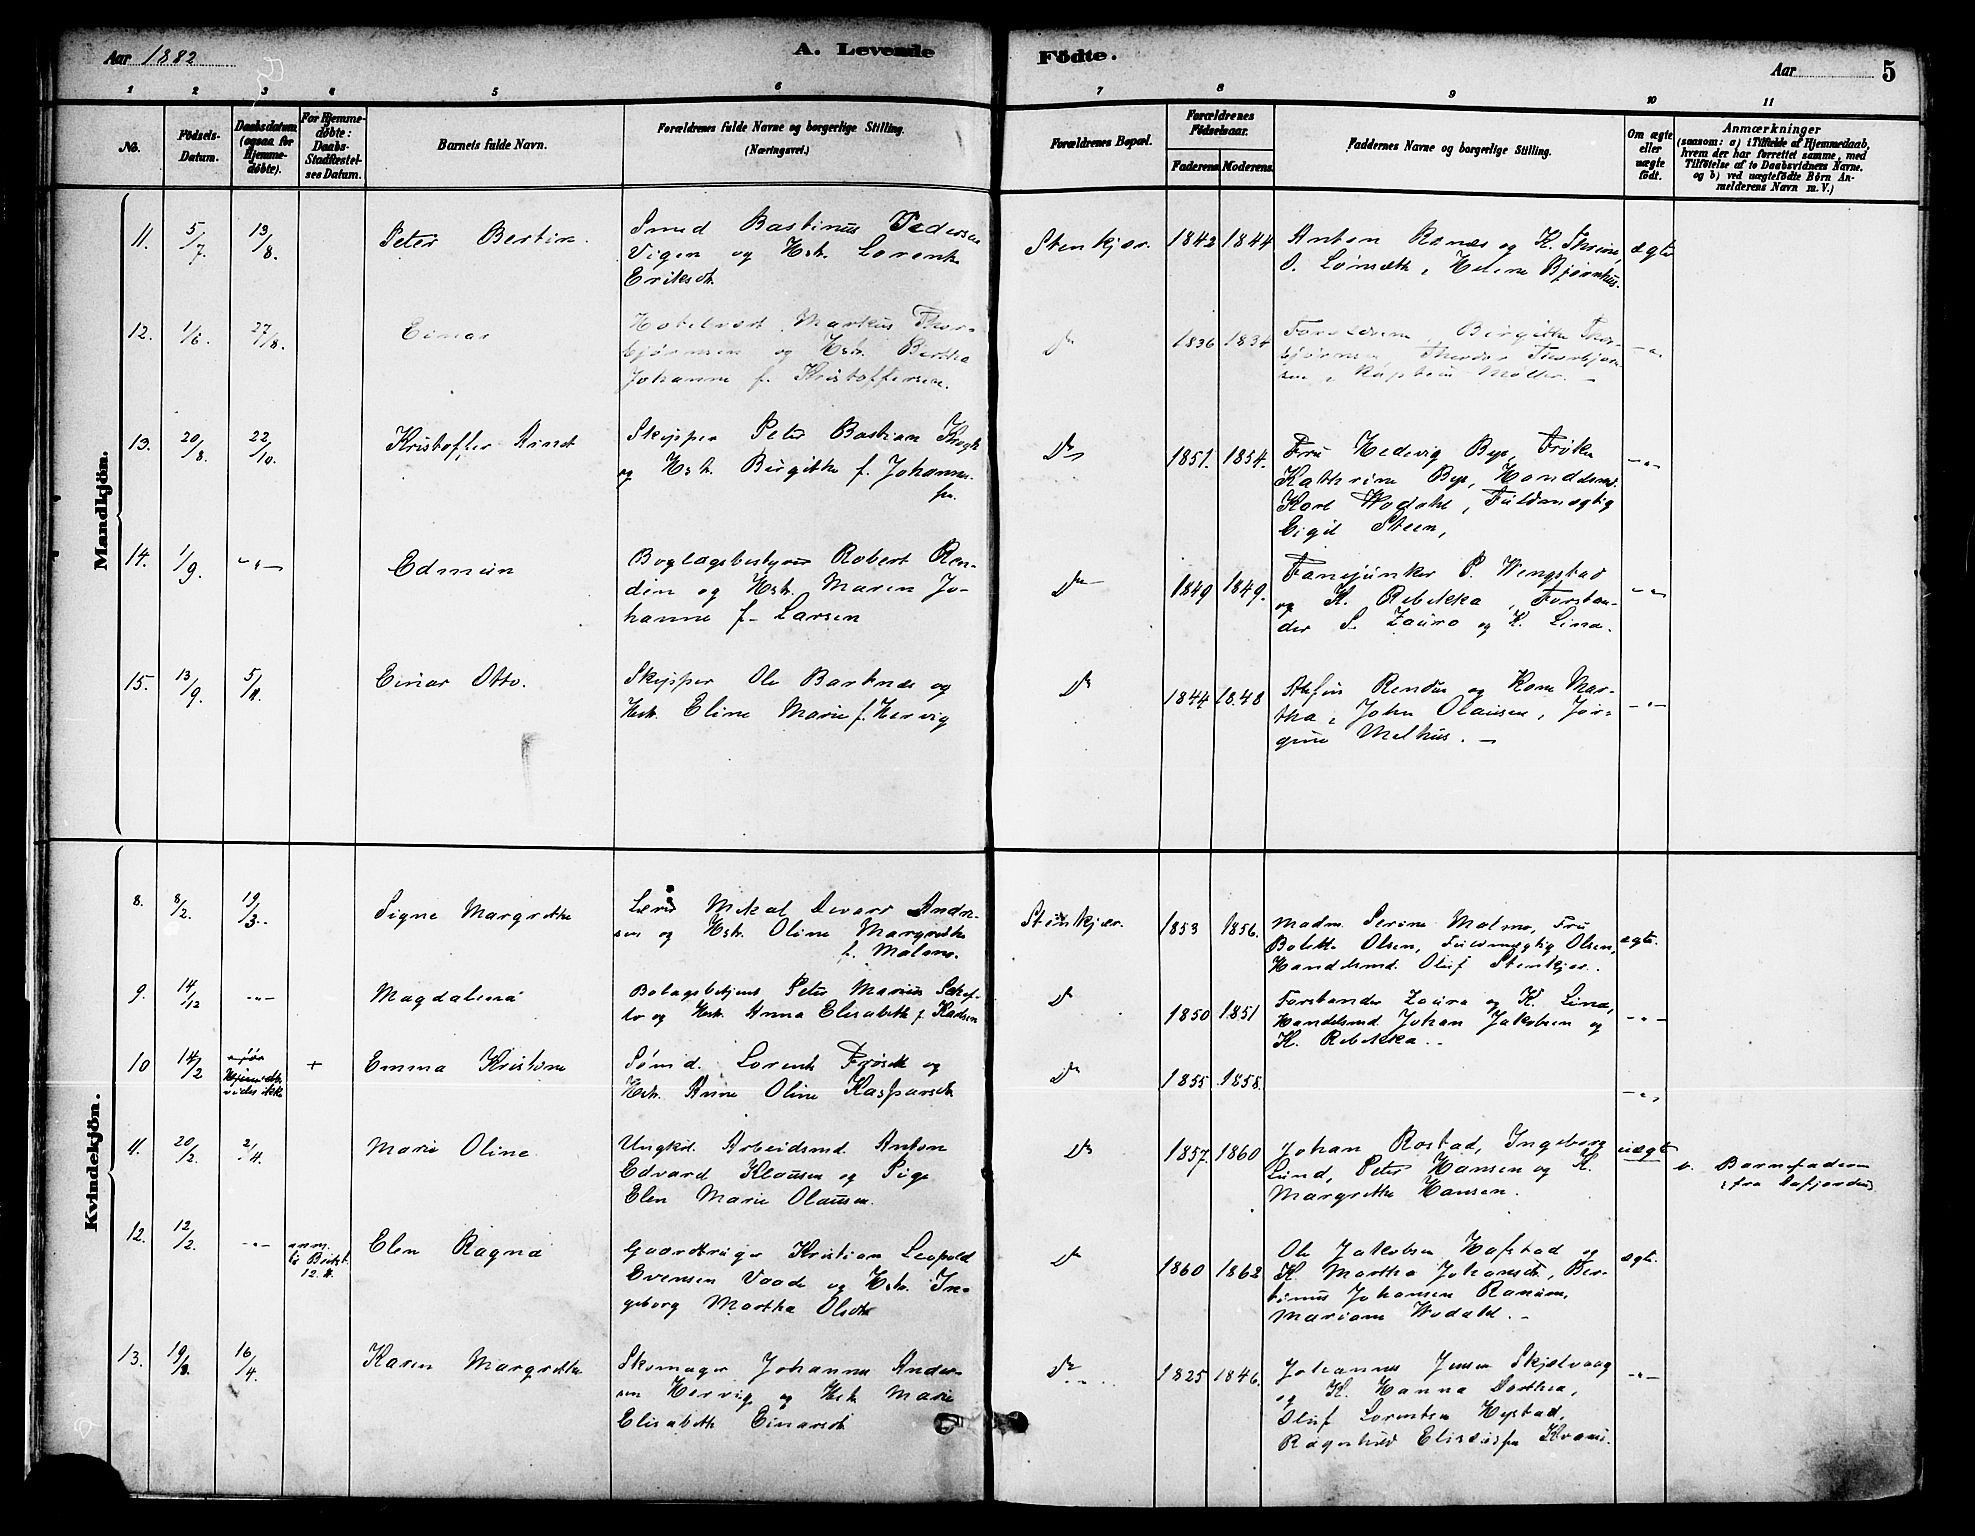 Aar 1882
A. Levende
Födte.
Aar 5
1 2 3 4 5 6 7 8 9 10 11
No.
Födsels-Datum.
Daabsdatum (ogsaa for Hjemmedøbte).
For Hjemmedøbte: Daabs-Stadfæstelses Datum.
Barnets fulde Navn.
Forældrenes fulde Navne og borgerlige Stilling.
(Næringsvei.)
Forældrenes Bopæl.
Forældrenes Födselsaar.
Faderens Moderens.
Faddernes Navne og borgerlige Stilling.
Om ægte eller uægte födt.
Anmærkninger
(saasom: a) i Tilfælde af Hjemmedaab,
hvem der har forrettet samme, med
Tilföielse af to Daabsvidners Navne.
og b) ved uægtefödte Börn An-
melderens Navn m. V.)
Mandkjön.
11. 5/7. 13/8. Peter Bertin.
Smed Bastinus Pedersen
Vigen og Hstr. Lorents
Eriksdt.
Stenkjær. 1842 1844
Anton Ranæs og K.
O. Lønseth, Helene Bjørnhus.
ægte
12. 1/6. 27/8. Einar
Hotelvært Markus Thor-
bjørnsen og Hstr. Bertha
Johanne f. Kristoffersen.
Do 1836 1834
Forældrene, Birgitte Thor-
bjørnsen, Theodor Thorbjørn-
sen, Kaptein Møller. -
-"-
13. 20/8. 22/10. Kristoffer Arndt
Skipper Peter Bastian
og Hstr. Birgitte f. Johanne-
sen.
Do 1851. 1854.
Fru Hedevig Bye, Frøken
Kathrine Bye, Handelsmd.
Karl Wodahl, Fuldmægtig
Eigil Steen,
-"-
14. 1/9. -"- Edmun
Boglagsbestyrer Robert Ren-
din og Hstr. Maren Jo-
hanne f. Larsen
Do 1849 1849.
Fanejunker P. Wengstad
og K. Rebekka, Forstan-
der S. Zaura og K. Lina.
-"-
15. 13/9. 5/11. Einar Otto.
Skipper Ole Bartnæs og
Hstr. Eline Marie f. Hervig
Do 1844 1848
Stefen Rendum og Kone Mar-
tha, John Olausen, Jør-
gine Melhus. -
-"-
Kvindekjön.
8. 8/2. 19/3. Signe Margrethe
Lærer Mekal Devard Andre-
sen og Hstr. Oline Margrethe
f. Malmo.
Stenkjær. 1853 1856.
Madm. Serine Malmo, Fru
Bolette Olsen, Fuldmægtig Olsen,
Handelsmd. Oluf Stenkjær.
ægte.
9. 14/12 -"- Magdalena
Peter Marius
og Hstr. Anna Elisabeth f. Karlsen
Do 1850 1851
Forstander Zaura og K. Lina,
Handelsmd. Johan Jakobsen og
K. Rebekka. -
-"-
10 14/2 + Emma Kristine
Sømd. Lorents Frøseth og
Hstr. Anne Oline Kaspersdt.
Do 1855 1858.
-"-
11. 20/2. 2/4. Marie Oline
Ungkl. Arbeidsmd. Anton
Edvard Klausen og Pige
Elen Marie Olausen.
Do 1857. 1860
Johan Rostad, Ingeborg
Lund, Peter Hansen og K.
Margrethe Hansen.
uægte
b. Barnefaderen
12. 12/2. -"- Elen Ragna
Gaardbruger Kristian Leopold
Evensen Vaade og Hstr. In-
geborg Martha Olsdtr.
Do 1860 1862
Ole Jakobsen Hafstad og
K. Martha Johansdt., Ber-
tinus Johansen Ranum,
Mariane Wodahl. -
ægte.
13. 19/3. 16/4. Karen Margrethe
Skomager Johannes Ander-
sen Hervig og Hstr. Marie
Elisabeth Einarsdt.
Do 1825 1846.
Johannes Jensen Skjelvaag
og K. Hanna Dorthea,
Oluf Lorentsen Hystad,
Ragnhild
-"-